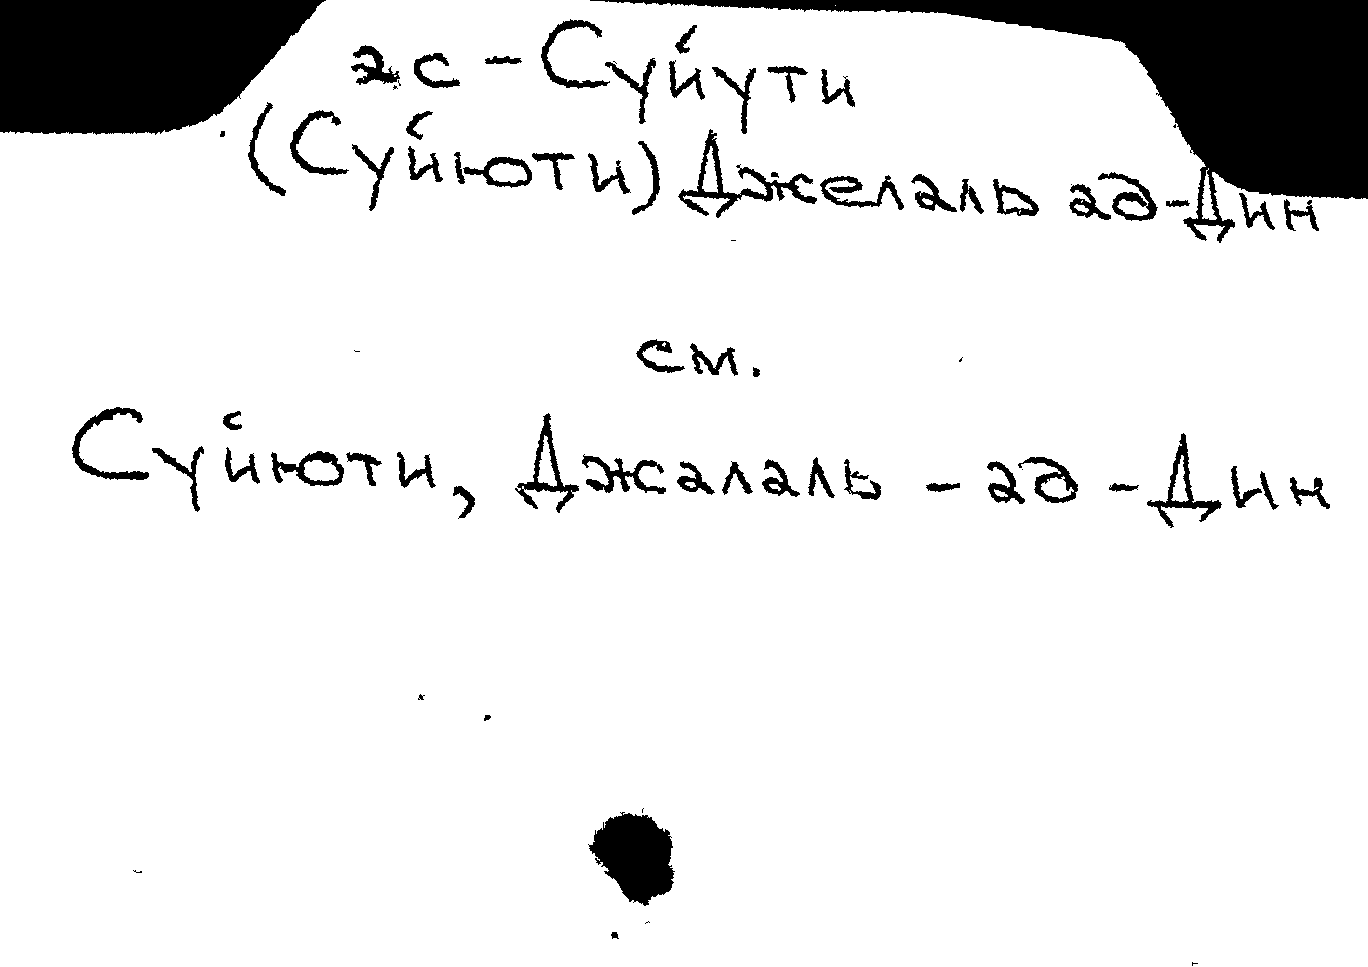 ас-Суйути
(Суйюти) Джелаль ад-Дин
см.
Суйюти, Джалаль - ад-Дин